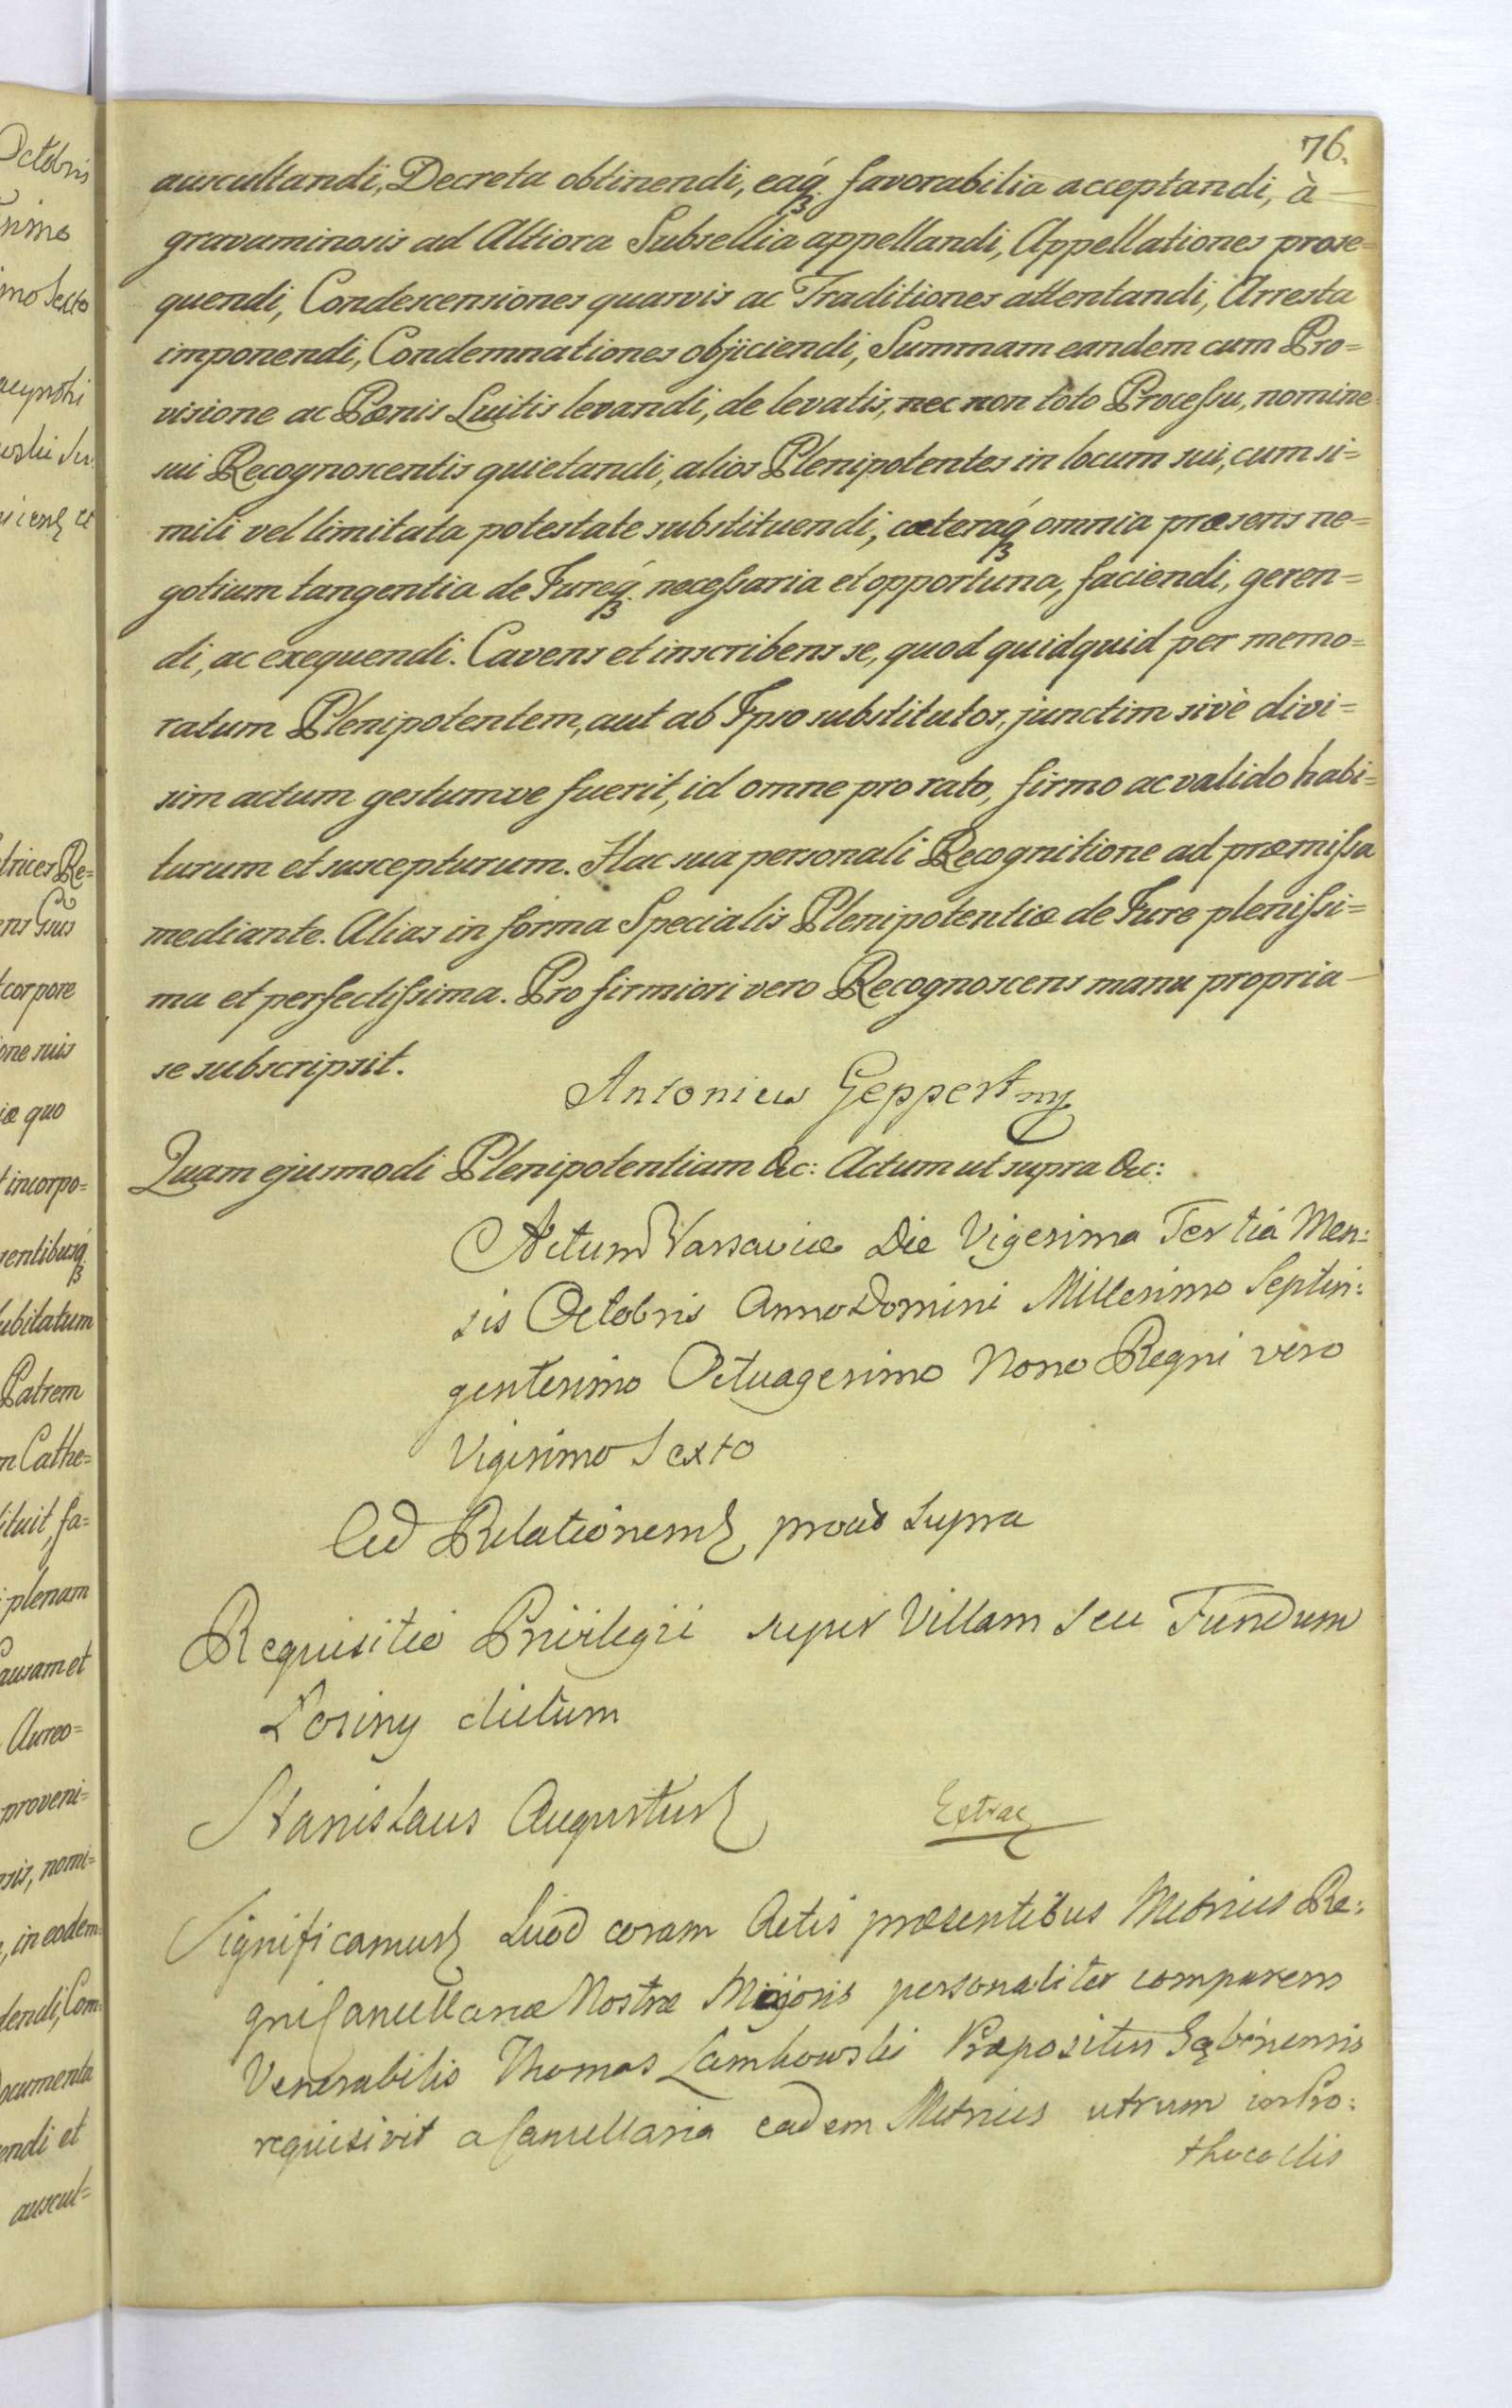 76.
auscultandi, Decreta obtinendi, eaq́ꝫ favorabilia acceptandi, à
gravaminosis ad Altiora Subsellia appellandi, Appellationes prose=
quendi, Condescensiones quasvis ac Traditiones attentandi, Arresta
imponendi, Condemnationes objiciendi, Summam eandem cum Pro=
visione ac Pœnis Luitis levandi, de levatis, nec non toto Processu, nomine
sui Recognoscentis quietandi, alios Plenipotentes in locum sui, cum si=
mili vel limitata potestate substituendi, cæteraq́ꝫ omnia præsens ne=
gotium tangentia de Jureq́ꝫ necessaria et opportuna, faciendi, geren=
di, ac exequendi. Cavens et inscribens se, quod quidquid per memo=
ratum Plenipotentem, aut ab Ipso substitutos, junctim sivè divi=
sim actum gestumve fuerit, id omne pro rato, firmo ac valido habi=
turum et suscepturum. Hac sua personali Recognitione ad præmissa
mediante. Alias in forma Specialis Plenipotentiæ de Jure plenissi=
ma et perfectissima. Pro firmiori vero Recognoscens manu propria
se subscripsit.
Antonius Geppert mp
Quam ejusmodi Plenipotentiam &c: Actum ut supra &c:
Actum Varsaviæ Die Vigesima Tertia Men:
sis Octobris Anno Domini Millesimo Septin:
gentesimo Octuagesimo Nono Regni vero
Vigesimo Sexto
Ad Relationem prout supra
Requisitio Privilegii super Villam seu Fundum
Łosiny dictum
Stanislaus Augustus
Extrac
Significamus Quod coram Actis præsentibus Metrices Re:
gni Cancellariæ Nostræ Majoris personaliter comparens
Venerabilis Thomas Zambowski Præpositus Gąbinensis
requisivit a Cancellaria eadem Metrices utrum in Pro:
thocollis